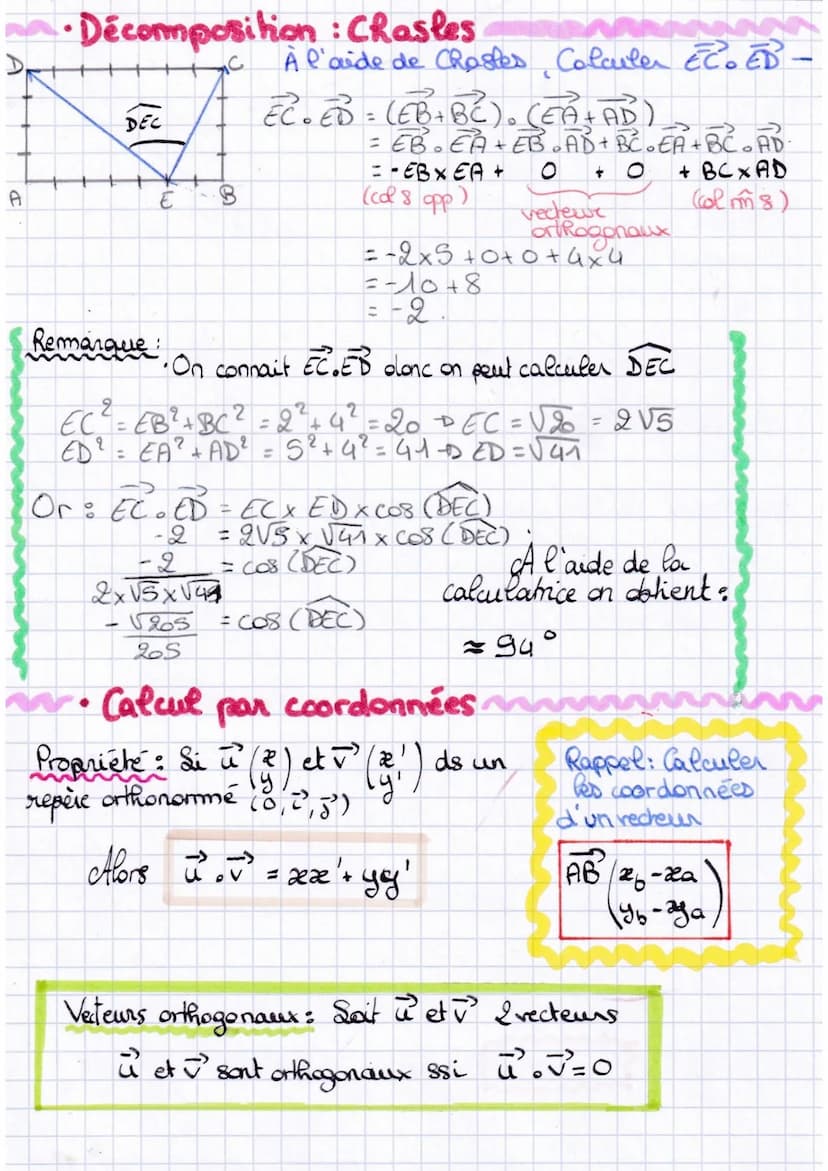 • Décomposition : Chasles
À l'aide de Chasles, Calculer EC⃗ . ED⃗
D C
DEC^
A E B
EC⃗ . ED⃗ = (EB⃗ + BC⃗) . (EA⃗ + AD⃗)
= EB⃗ . EA⃗ + EB⃗ . AD⃗ + BC⃗ . EA⃗ + BC⃗ . AD⃗
= - EB x EA + 0 + 0 + BC x AD
(col s opp) vecteur orthogonaux (col m̂ s)
= -2x5 + 0 + 0 + 4x4
= -10 + 8
= -2.
Remarque :
• On connait EC⃗.ED⃗ donc on peut calculer DEC^
EC² = EB² + BC² = 2² + 4² = 20 → EC = √20 = 2√5
ED² = EA² + AD² = 5² + 4² = 41 → ED = √41
Or : EC⃗ . ED⃗ = EC x ED x cos (DEC^)
-2 = 2√5 x √41 x cos (DEC^)
-2 / 2x√5x√41 = cos (DEC^)
-√205 / 205 = cos (DEC^)
À l'aide de la
calculatrice on obtient :
≈ 94°
• Calcul par coordonnées
Propriété : Si u⃗ (x y) et v⃗ (x' y') ds un
repère orthonormé (0, i⃗, j⃗)
Alors u⃗ . v⃗ = xx' + yy'
Rappel : Calculer
les coordonnées
d'un vecteur
AB⃗ (xb - xa
yb - ya)
Vecteurs orthogonaux : Soit u⃗ et v⃗ 2 vecteurs
u⃗ et v⃗ sont orthogonaux ssi u⃗ . v⃗ = 0